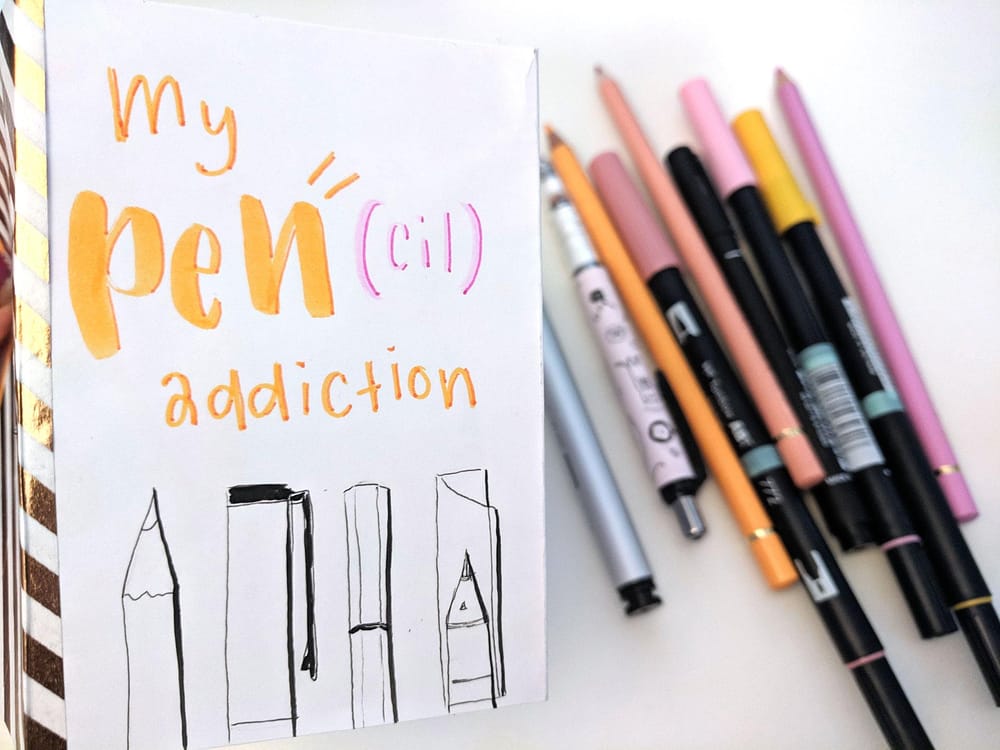 My
pen (cil)
addiction
772